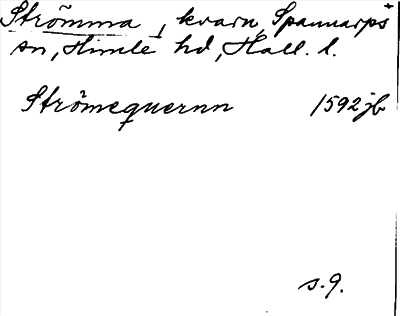 Strömma, kvarn, Spannarps
sn, Himle hd, Hall. l.
Strömequernn 1592 jb
s. 9.